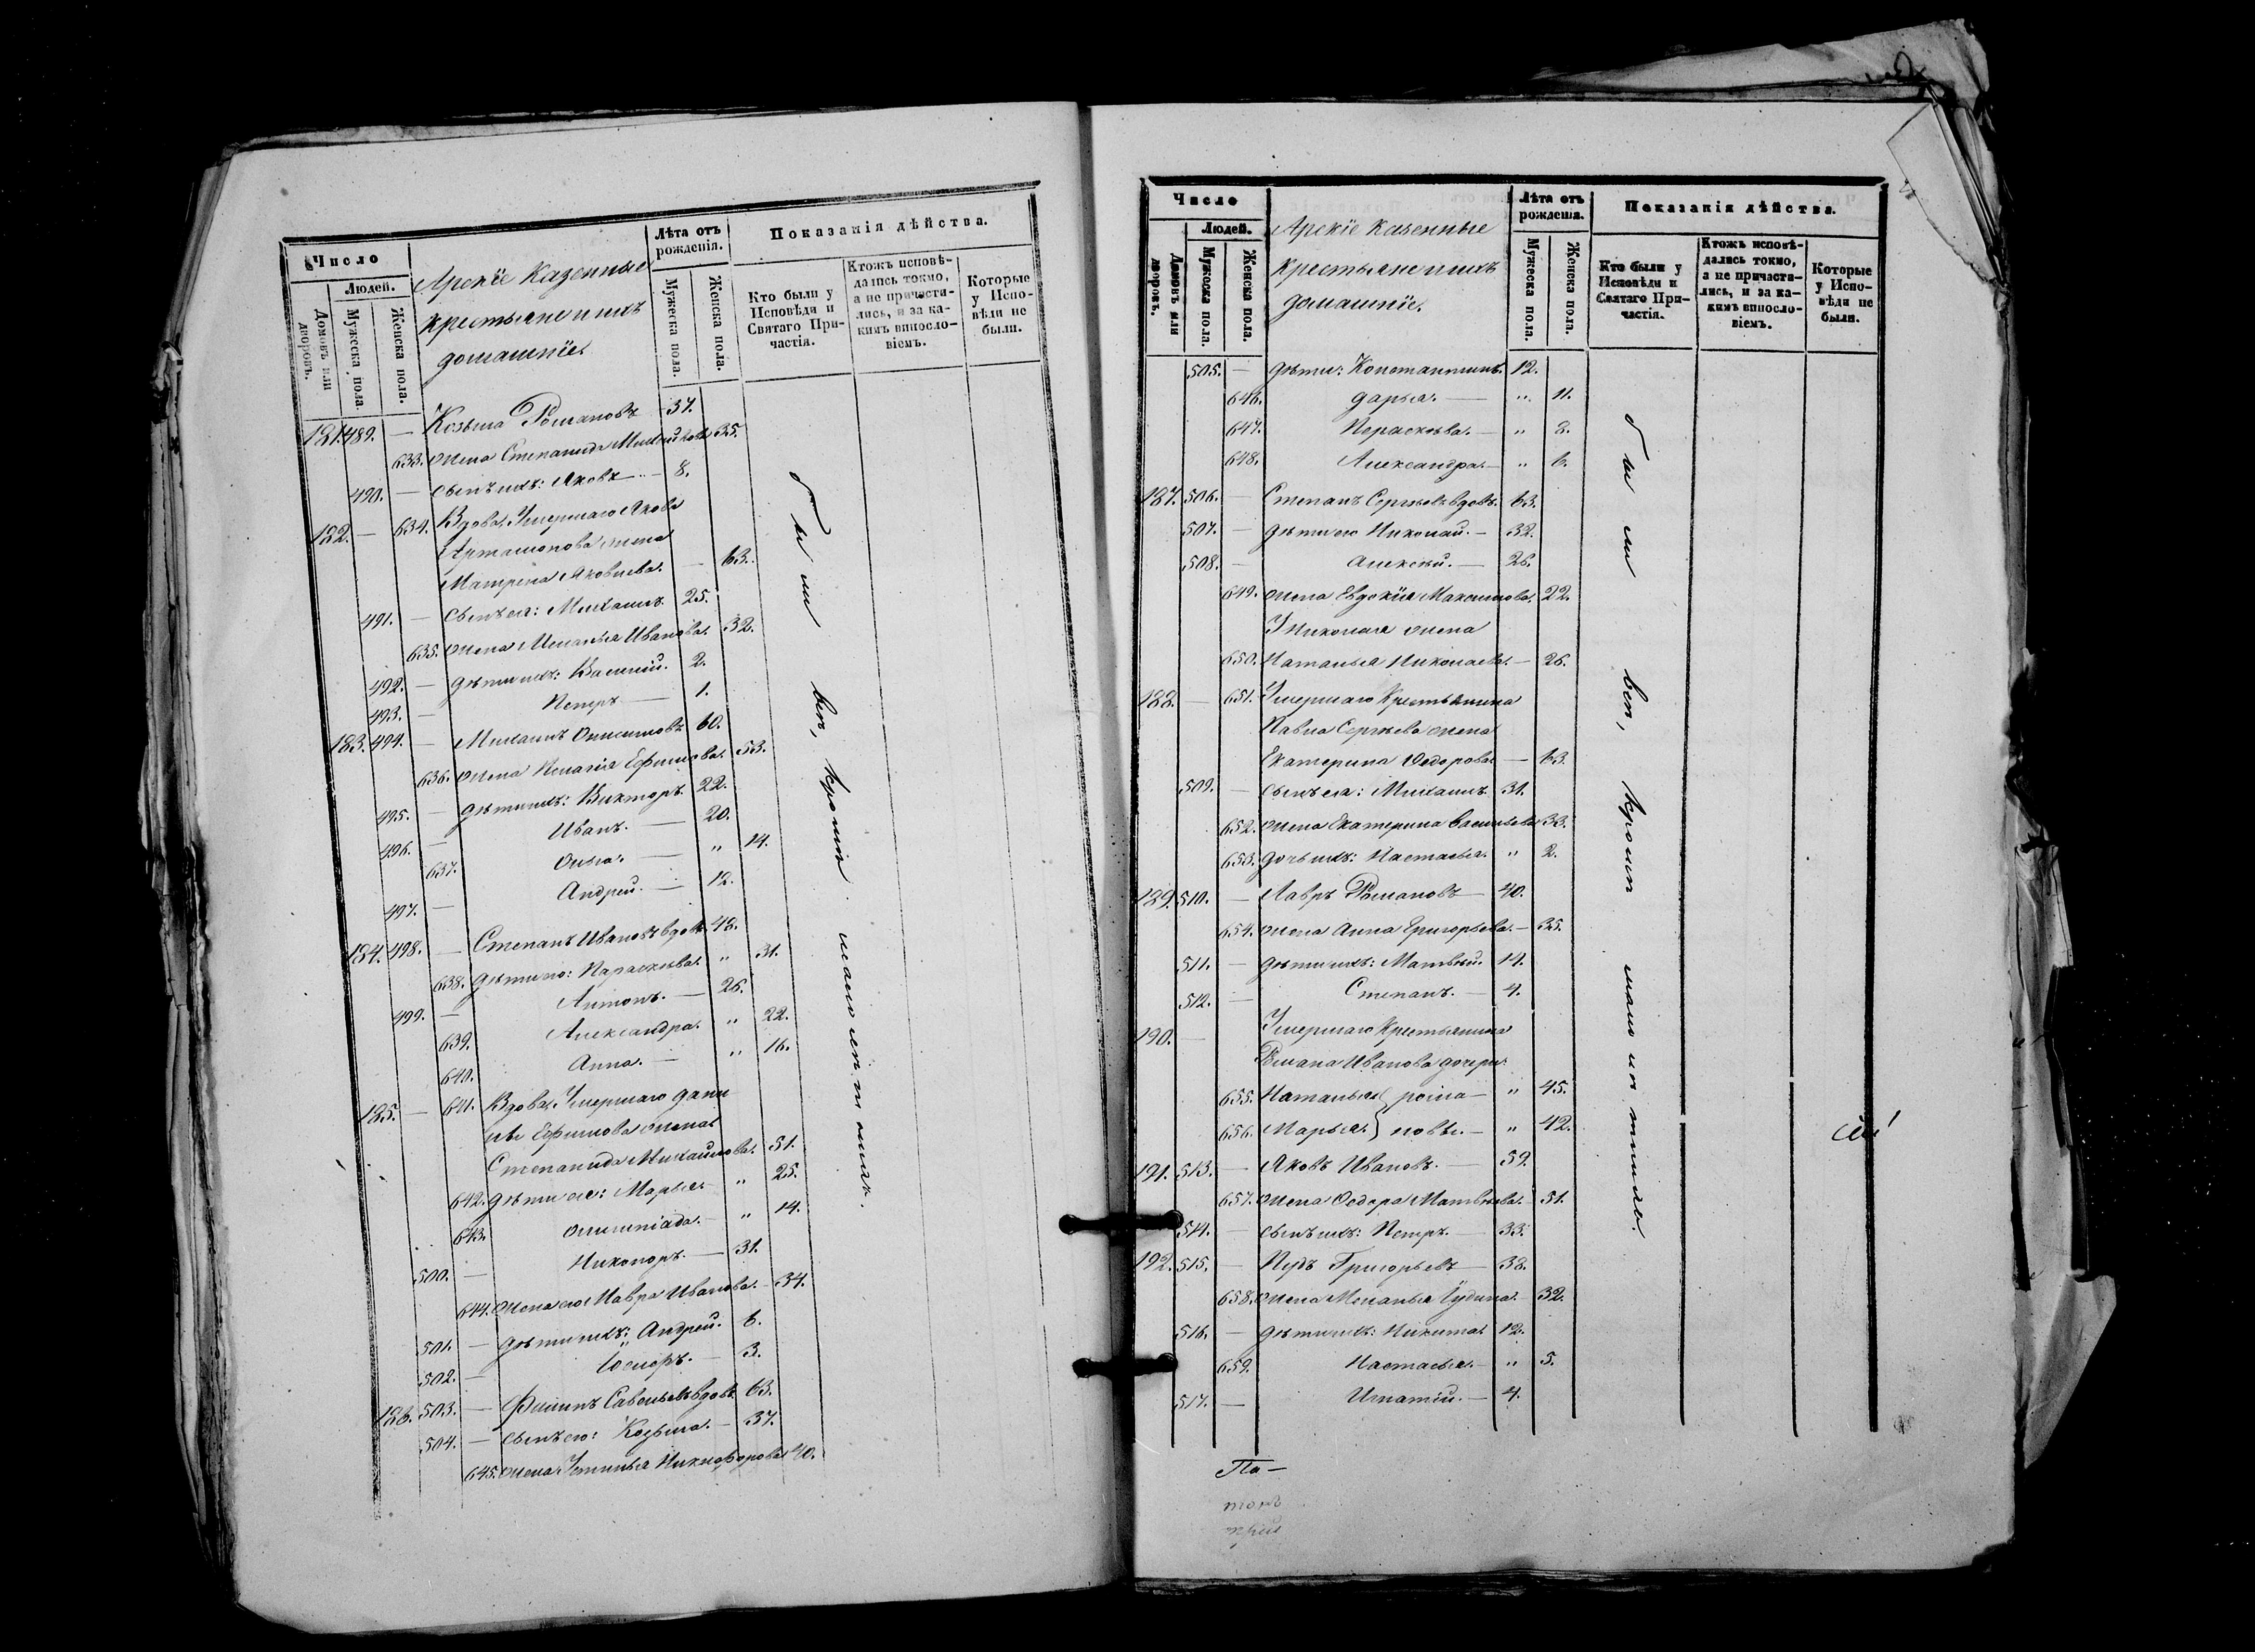 Число
Людей.
Домовъ или дворовъ.
Мужеска пола.
Женска пола.
Арскіе Казенные
крестьяне и ихъ
домашніе.
Лѣта отъ рожденія.
Мужеска пола.
Женска пола.
Показанія дѣйства.
Кто были у Исповѣди и Святаго Причастія.
Ктожъ исповѣдались токмо, а не причастились, и за какимъ винословіемъ.
Которые у Исповѣди не были.
181. 489. — Козьма Романовъ — 37.
633. жена Степанида Михайлова 35.
490. — сынъ ихъ: Яковъ — 8.
182. — 634. Вдова, Умершаго Якова
Артамонова жена
Матрена Яковлева. — 63.
491. — сынъ ея: Михаилъ. 25.
635. жена Меланья Иванова. 32.
492. — дѣти ихъ: Василій. 2.
493. — Петръ — 1.
183. 494. — Михаилъ Онисимовъ 60.
636. жена Пелагія Ефимова. 53.
495. — дѣти ихъ: Викторъ. 22.
496. — Иванъ. — 20.
637. Ольга. — „ 14.
497. — Андрей. — 12.
184. 498. — Степанъ Ивановъ вдовъ. 48.
638. дѣти его: Параскева. „ 31.
499. — Антонъ. — 26.
639. Александра. „ 22.
640. Анна. — „ 16.
185. — 641. Вдова, Умершаго Дани-
ила Ефимова жена
Степанида Михайлова. 51.
642. дѣти ея: Марья. „ 25.
643. Олимпіада. — „ 14.
500. — Никоноръ. — 31.
644. жена его Мавра Иванова. — 34.
501. — дѣти ихъ: Андрей. 6.
502. — — 3.
186. 503. — Филипъ Савельевъ вдовъ. 63.
504. — сынъ его: Козьма. — 37.
645. жена Устинья Никифорова 40.
были всѣ, кромѣ малолѣтнихъ.
Число
Людей.
Домовъ или дворовъ.
Мужеска пола.
Женска пола.
Арскіе Казенные
крестьяне и ихъ
домашніе.
Лѣта отъ рожденія.
Мужеска пола.
Женска пола.
Показанія дѣйства.
Кто были у Исповѣди и Святаго Причастія.
Ктожъ исповѣдались токмо, а не причастились, и за какимъ винословіемъ.
Которые у Исповѣди не были.
505. — дѣти: Константинъ. 12.
646. Дарья. — „ 11.
647. Параскева. — „ 8.
648. Александра. — „ 6.
187. 506. — Степанъ Сергѣевъ вдовъ. 63.
507. — дѣти его Николай. — 32.
508. — Алексѣй. — 26.
649. жена Евдокія Максимова. 22.
У Николая жена
650. Наталья Николаева. — 26.
188. — 651. Умершаго Крестьянина
Павла Сергѣева жена
Екатерина Федорова — 63.
509. — сынъ ея: Михаилъ. 31.
652. жена Екатерина Васильева 33.
653. дочь ихъ: Настасья. „ 2.
189. 510. — Лавръ Романовъ — 40.
654. жена Анна Григорьева. — 35.
511. — дѣти ихъ: Матвѣй. 14.
512. — Степанъ. — 4.
190. — Умершаго Крестьянина
Романа Иванова дочери:
655. Наталья } рома — „ 45.
656. Марья. } новы. — „ 42.
191. 513. — Яковъ Ивановъ. — 59.
657. жена Ѳедора Матвѣева. 51.
514. — сынъ ихъ: Петръ. — 33.
192. 515. — Пудъ Григорьевъ — 38.
658. жена Меланья Іудина. — 32.
516. — дѣти ихъ: Никита. 12.
659. Настасья. — „ 5.
517. — Игнатій. — 4.
были всѣ, кромѣ малолѣтнихъ.